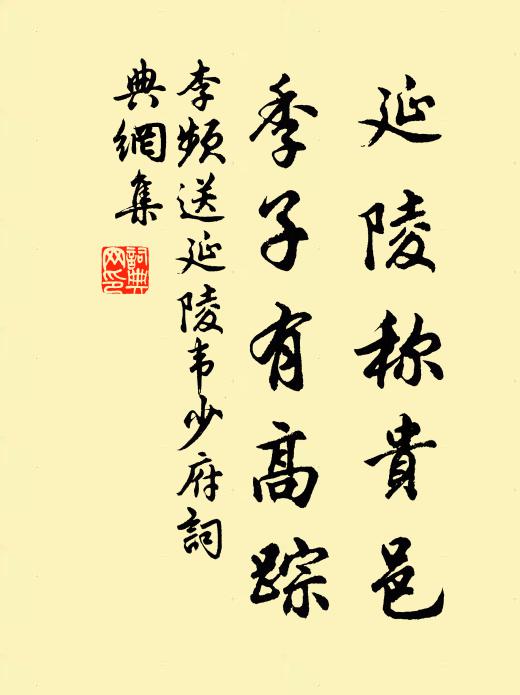 延陵称貴邑
季子有高踪
李频送延陵韦少府詞
典網集
詞典网印